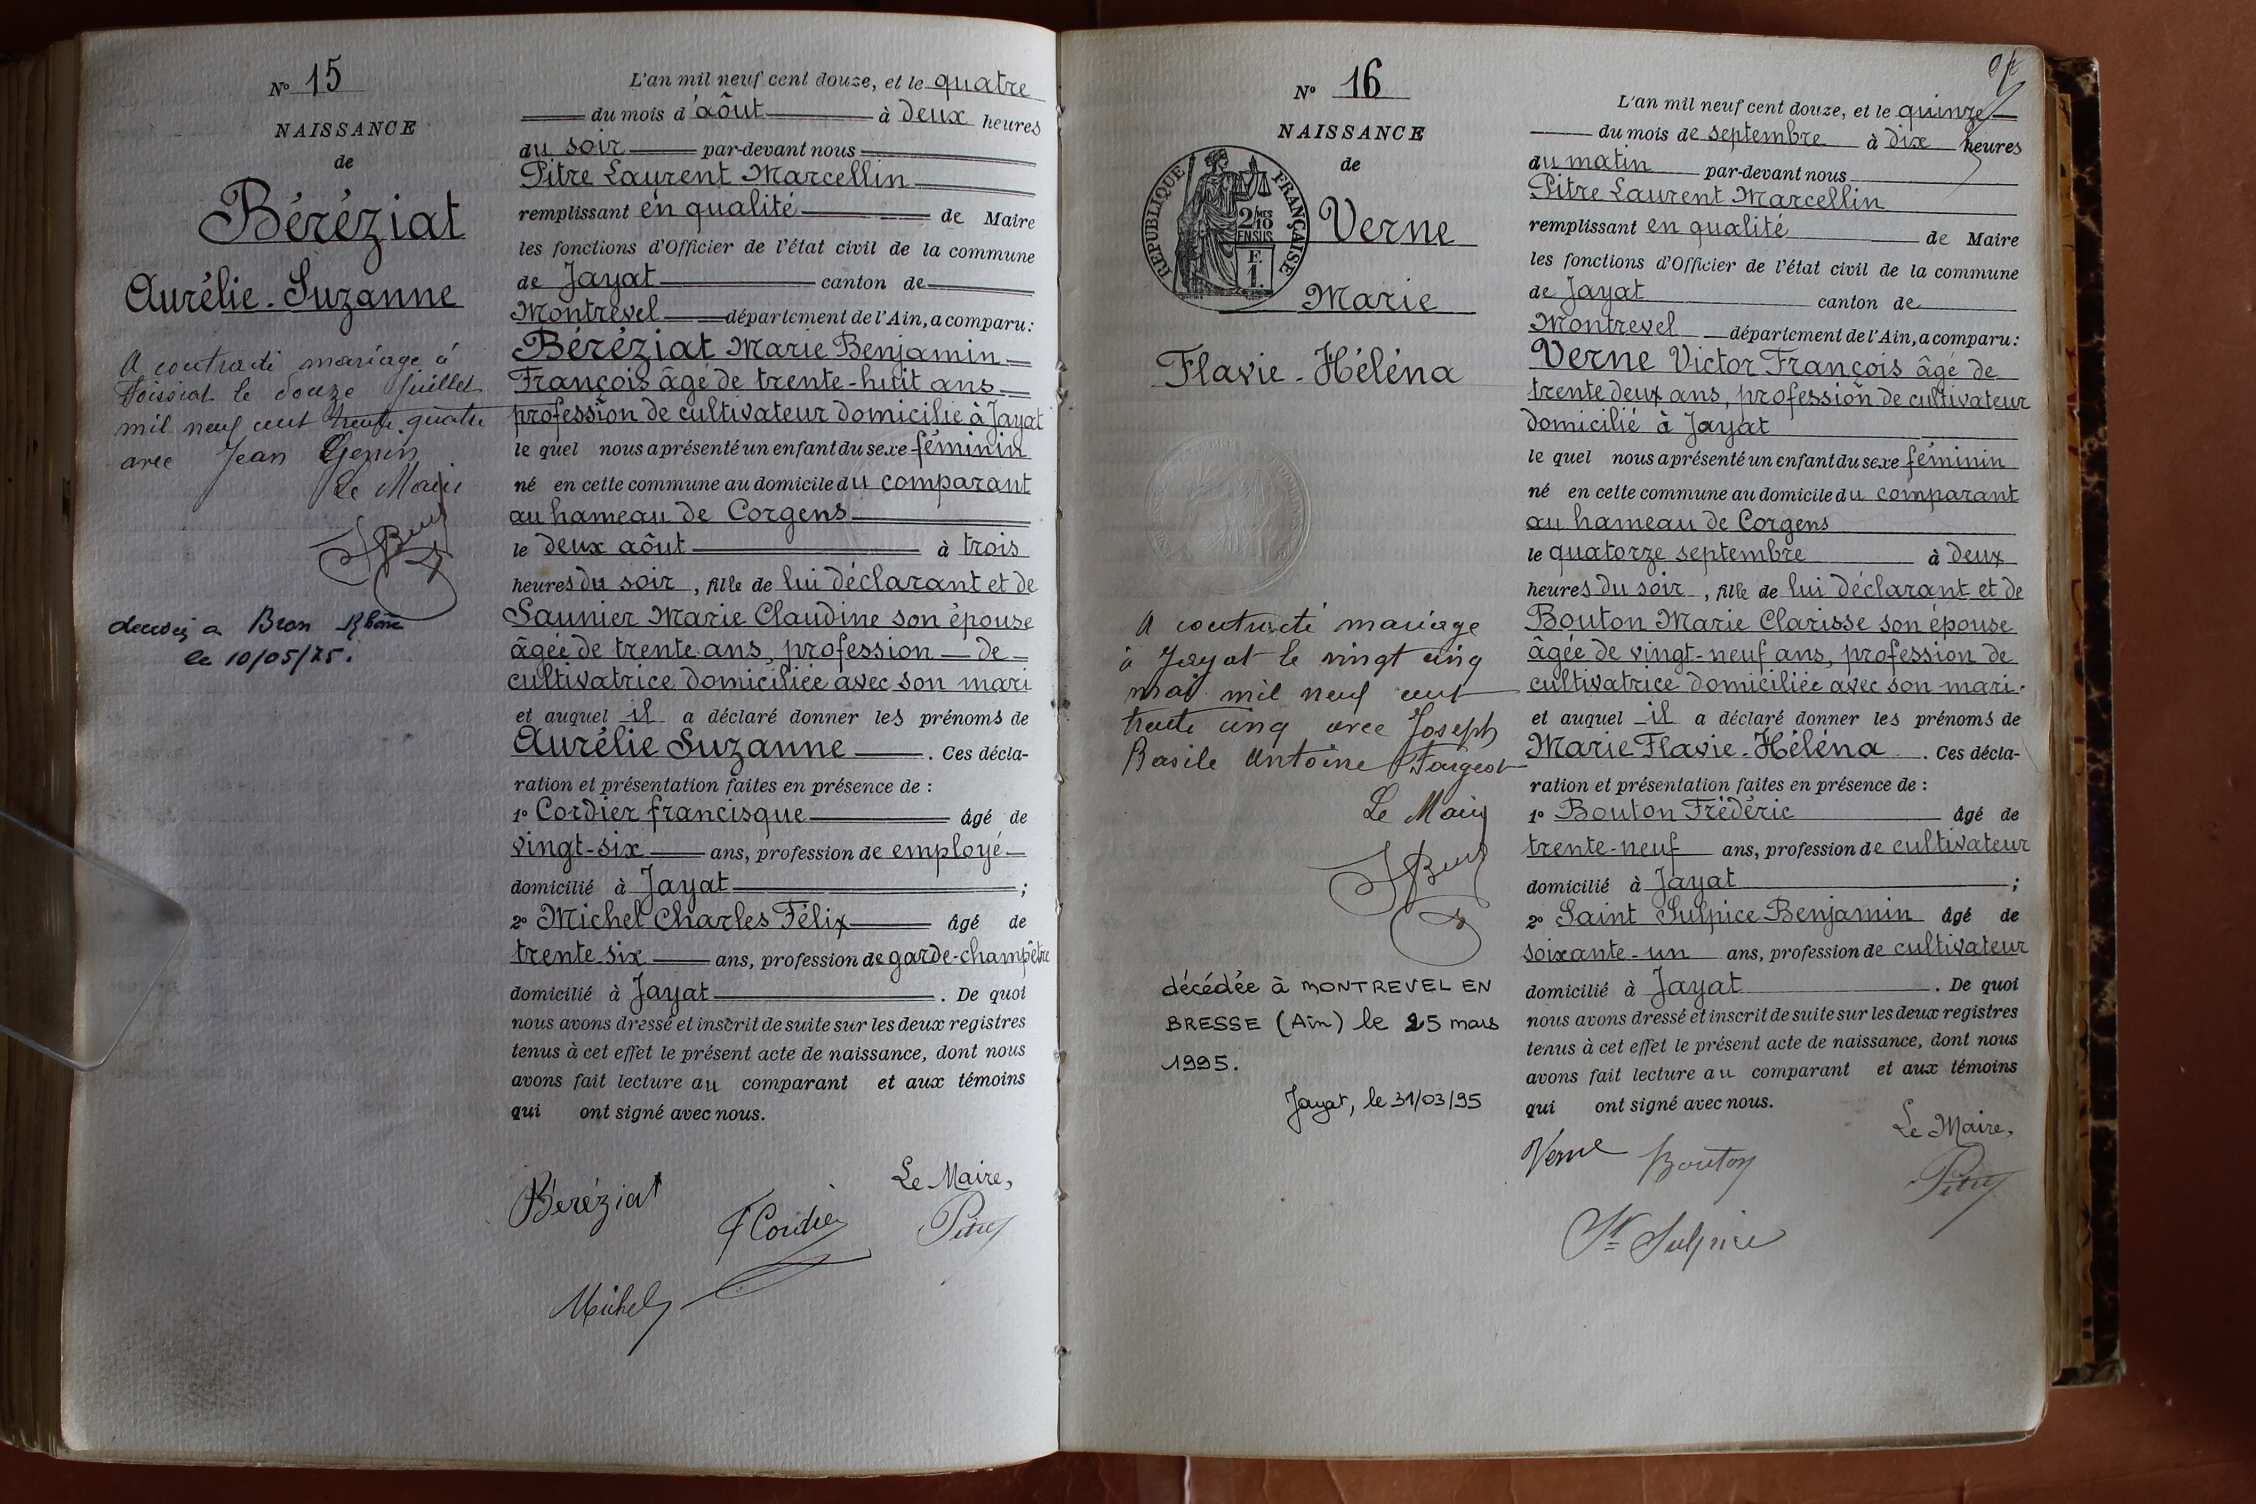 Nº 15
NAISSANCE
de
Béréziat
Aurélie-Suzanne
A contracté mariage à
Foissiat le douze juillet
mil neuf cent trente quatre
avec Jean Genin
Le Maire
décédée à Bron Rhône
le 10/05/75.
L'an mil neuf cent douze, et le quatre
du mois d'aôut à deux heures
du soir par-devant nous
Pitre Laurent Marcellin
remplissant en qualité de Maire
les fonctions d'Officier de l'état civil de la commune
de Jayat canton de
Montrevel département de l'Ain, a comparu:
Béréziat Marie Benjamin
François âgé de trente-huit ans
profession de cultivateur domicilié à Jayat
le quel nous a présenté un enfant du sexe féminin
né en cette commune au domicile du comparant
au hameau de Corgens
le deux aôut à trois
heures du soir, fille de lui déclarant et de
Saunier Marie Claudine son épouse
âgée de trente ans, profession de
cultivatrice domiciliée avec son mari
et auquel il a déclaré donner les prénoms de
Aurélie Suzanne. Ces décla-
ration et présentation faites en présence de:
1º Cordier francisque âgé de
vingt-six ans, profession de employé
domicilié à Jayat;
2º Michel Charles Félix âgé de
trente six ans, profession de garde-champêtre
domicilié à Jayat. De quoi
nous avons dressé et inscrit de suite sur les deux registres
tenus à cet effet le présent acte de naissance, dont nous
avons fait lecture au comparant et aux témoins
qui ont signé avec nous.
Le Maire,
Béréziat
F Cordier
Pitre
Michel
Nº 16
NAISSANCE
de
REPUBLIQUE FRANÇAISE
2/10MES
EN SUS
F.
1.
Verne
Marie
Flavie-Héléna
A contracté mariage
à Jayat le vingt cinq
mai mil neuf cent
trente cinq avec Joseph
Basile Antoine Fargeot
Le Maire
décédée à MONTREVEL EN
BRESSE (Ain) le 25 mars
1995.
Jayat, le 31/03/95
L'an mil neuf cent douze, et le quinze
du mois de septembre à dix heures
du matin par-devant nous
Pitre Laurent Marcellin
remplissant en qualité de Maire
les fonctions d'Officier de l'état civil de la commune
de Jayat canton de
Montrevel département de l'Ain, a comparu:
Verne Victor François âgé de
trente deux ans, profession de cultivateur
domicilié à Jayat
le quel nous a présenté un enfant du sexe féminin
né en cette commune au domicile du comparant
au hameau de Corgens
le quatorze septembre à deux
heures du soir, fille de lui déclarant et de
Bouton Marie Clarisse son épouse
âgée de vingt-neuf ans, profession de
cultivatrice domiciliée avec son mari.
et auquel il a déclaré donner les prénoms de
Marie Flavie-Héléna. Ces décla-
ration et présentation faites en présence de:
1º Bouton Frédéric âgé de
trente-neuf ans, profession de cultivateur
domicilié à Jayat;
2º Saint Sulpice Benjamin âgé de
soixante-un ans, profession de cultivateur
domicilié à Jayat. De quoi
nous avons dressé et inscrit de suite sur les deux registres
tenus à cet effet le présent acte de naissance, dont nous
avons fait lecture au comparant et aux témoins
qui ont signé avec nous.
Le Maire,
Verne Bouton
Pitre
St Sulpice